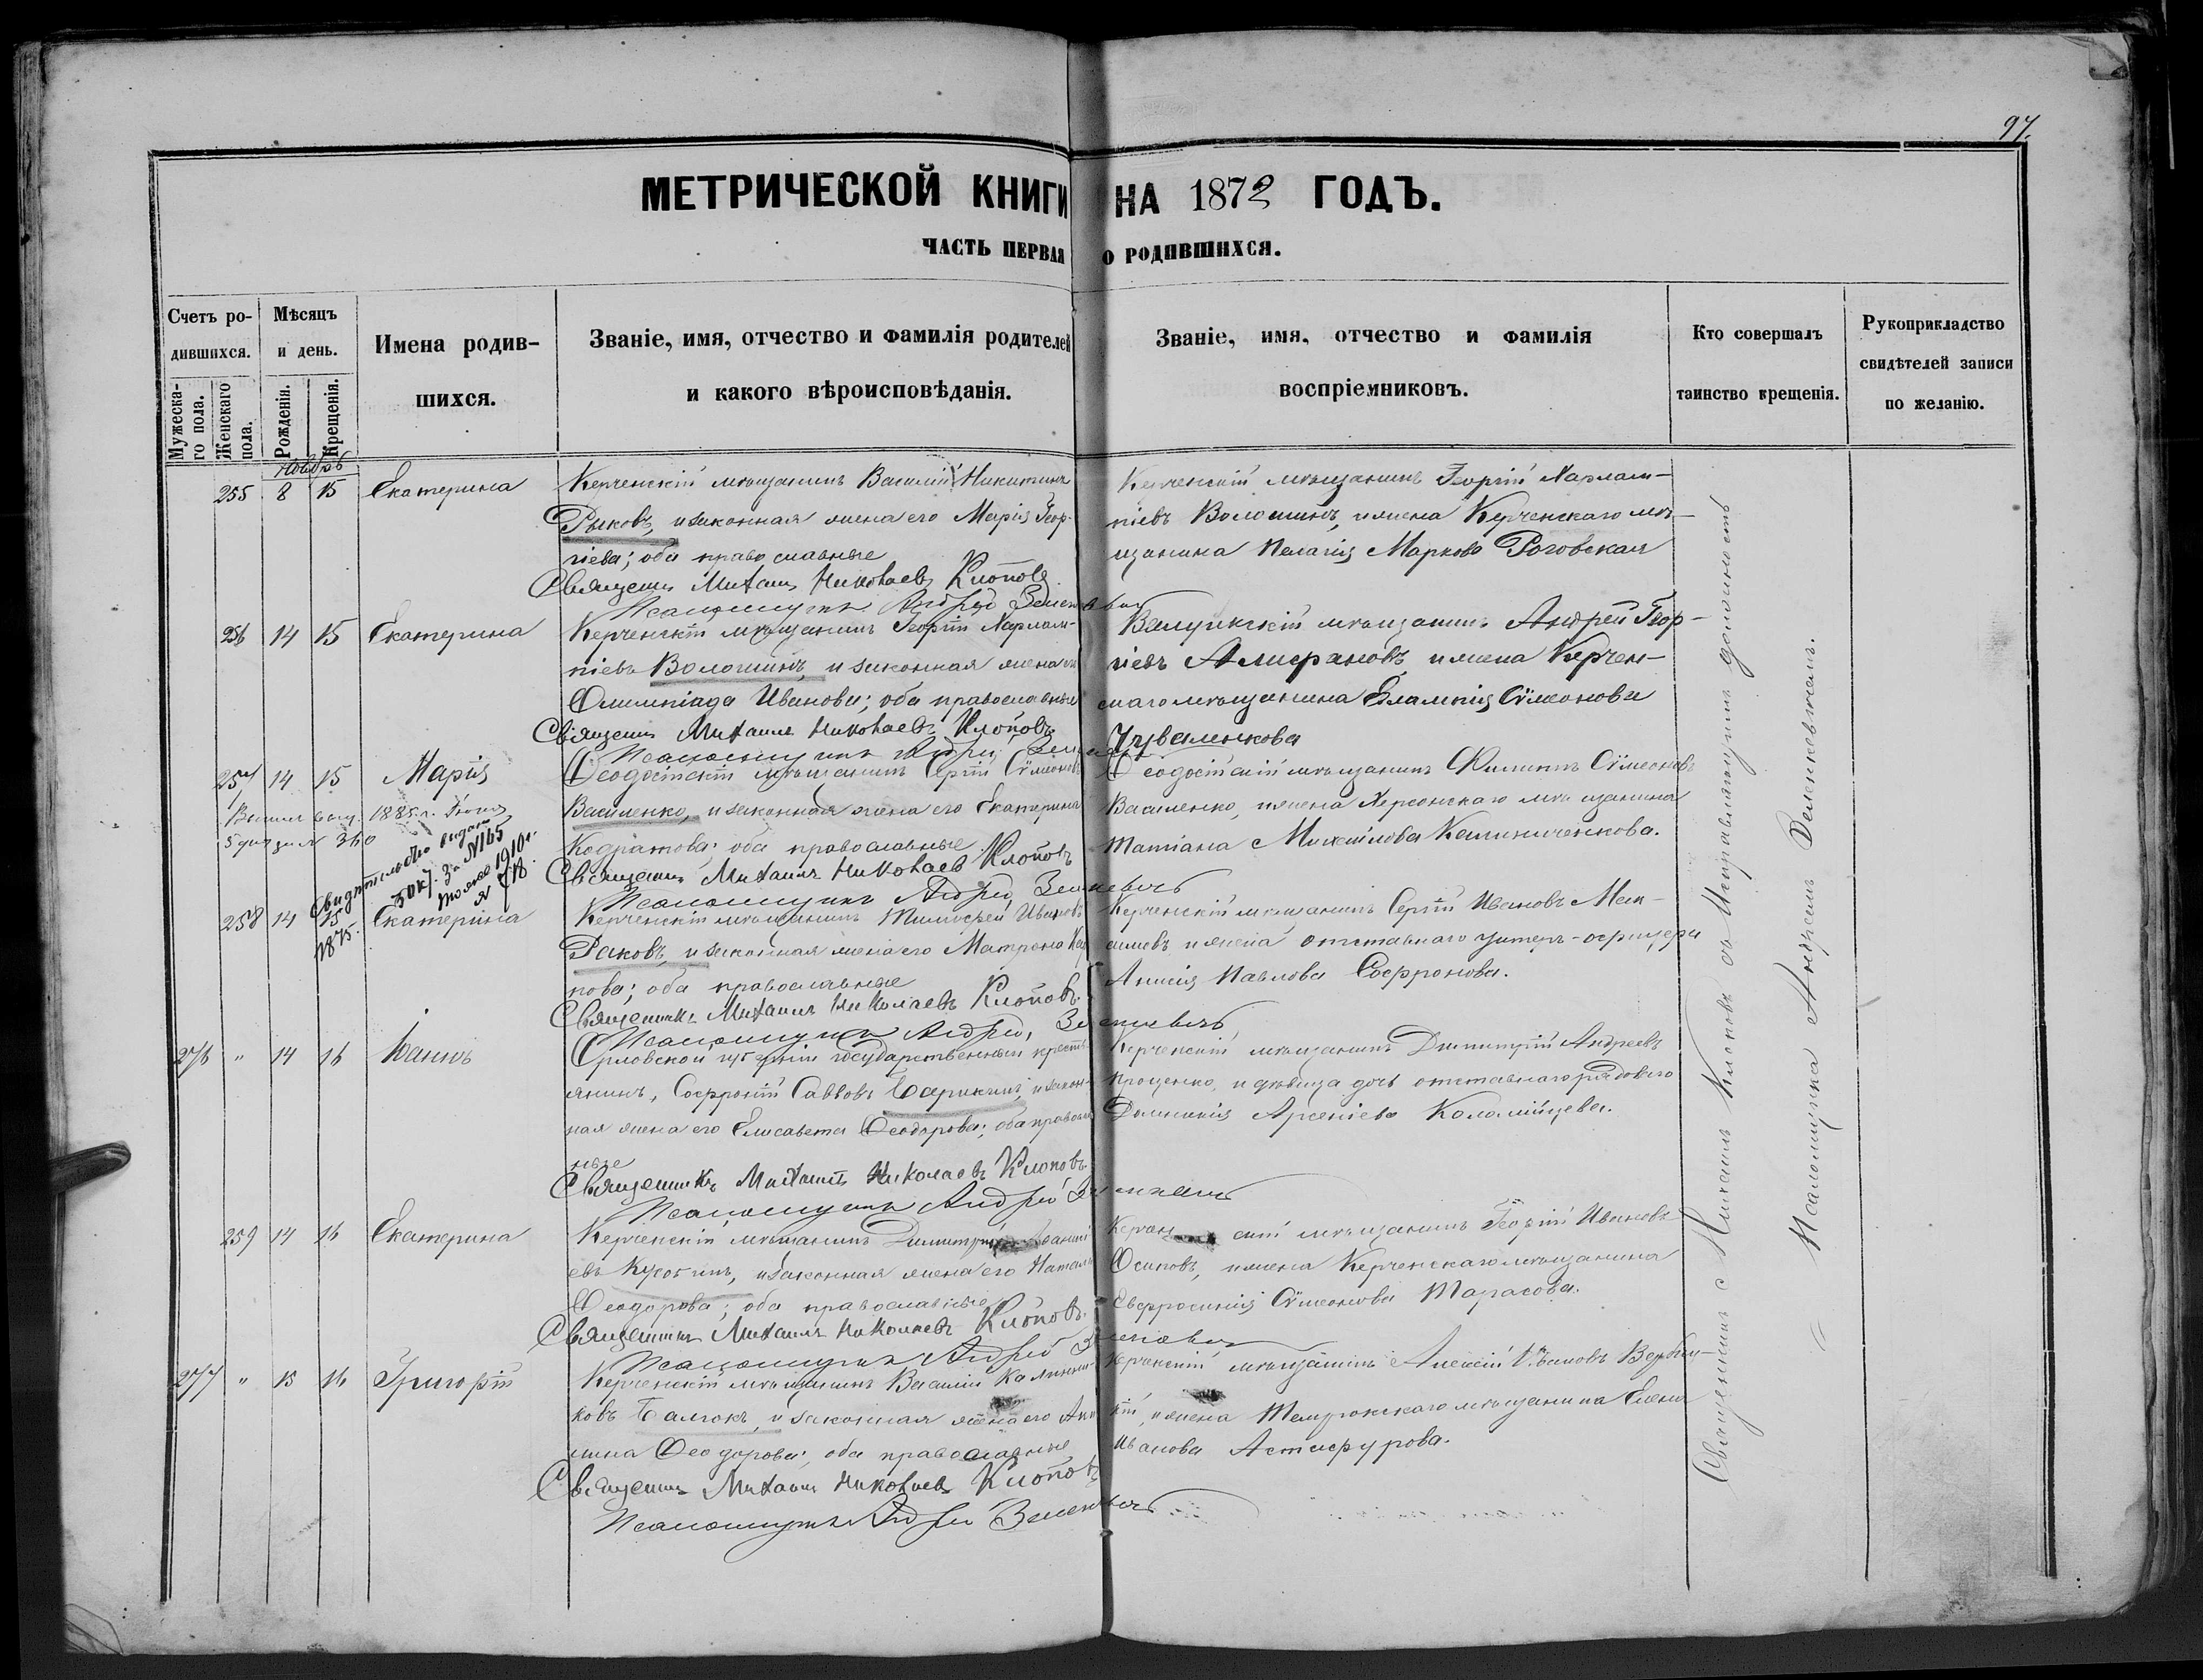 97.
МЕТРИЧЕСКОЙ КНИГИ НА 1872 ГОДЪ.
ЧАСТЬ ПЕРВАЯ О РОДИВШИХСЯ.
Счетъ ро-
дившихся.
Мужеска-
го пола.
Женскаго
пола.
Мѣсяцъ
и день.
Рожденія.
Крещенія.
Имена родив-
шихся.
Званіе, имя, отчество и фамилія родителей
и какого вѣроисповѣданія.
Званіе, имя, отчество и фамилія
воспріемниковъ.
Кто совершалъ
таинство крещенія.
Рукоприкладство
свидѣтелей записи
по желанію.
Ноябрь
255 8 15 Екатерина
Керченскій мѣщанинъ Василій Никитинъ
Рыковъ, и законная жена его Марія Геор-
гіева; оба православные
Священникъ Михаилъ Николаевъ Клоповъ
Псаломщикъ Андрей Зенкевичъ
Керченскій мѣщанинъ Георгій Харлам-
піевъ Волошинъ, и жена Керченскаго мѣ-
щанина Пелагія Маркова Роговская
256 14 15 Екатерина
Керченскій мѣщанинъ Георгій Харлам-
піевъ Волошинъ, и законная жена его
Олимпіада Иванова; оба православные
Священникъ Михаилъ Николаевъ Клоповъ
Псаломщикъ Андрей Зенкевичъ
Валуйскій мѣщанинъ Андрей Геор-
гіевъ и жена Керчен-
скаго мѣщанина Евлампія Сѵмеонова
257 14 15 Марія
Ѳеодосійскій мѣщанинъ Сергій Сѵмеоновъ
Василенко, и законная жена его Екатерина
Кодратова; оба православные
Священникъ Михаилъ Николаевъ Клоповъ
Псаломщикъ Андрей Зенкевичъ
Ѳеодосійскій мѣщанинъ Филиппъ Сѵмеоновъ
Василенко, и жена Херсонскаго мѣщанина
Татіана Михайлова Калиниченкова.
1885 г.
5 дня за № 360
Свидѣтельство выдано
за №165
1910 г.
258 14 15 Екатерина
1875.
Керченскій мѣщанинъ Тимофей Ивановъ
Раковъ, и законная жена его Матрона Кар-
пова; оба православные
Священникъ Михаилъ Николаевъ Клоповъ.
Псаломщикъ Андрей Зенкевичъ
Керченскій мѣщанинъ Сергій Ивановъ Мак-
симовъ и жена отставнаго унтеръ-офицера
Анисія Павлова Софронова.
276 " 14 16 Іоаннъ
Орловской губерніи государственный кресть-
янинъ, Софроній Савовъ и закон-
ная жена его Елисавета Ѳеодорова; оба православ-
ные
Священникъ Михаилъ Николаевъ Клоповъ.
Псаломщикъ Андрей Зенкевичъ
Керченскій мѣщанинъ Димитрій Андреевъ
Проценко, и дѣвица дочь отставнаго рядоваго
Домникія Арсеніева Коломійцева.
259 14 16 Екатерина
Керченскій мѣщанинъ Димитрій
евъ и законная жена его Наталія
Ѳеодорова; оба православные
Священникъ Михаилъ Николаевъ Клоповъ.
Псаломщикъ Андрей Зенкевичъ
Керченскій мѣщанинъ Георгій Ивановъ
Осиповъ, и жена Керченскаго мѣщанина
Евфросинія Сѵмеонова Тарасова.
277 " 15 16 Григорій
Керченскій мѣщанинъ Василій Калинни-
ковъ и законная жена его Аки-
лина Ѳеодорова; оба православные
Священникъ Михаилъ Николаевъ Клоповъ
Псаломщикъ Андрей Зенкевичъ
Керченскій мѣщанинъ Алексій Ивановъ Вербиц-
кій, и жена Темрюкскаго мѣщанина Елена
Иванова
Священникъ Михаилъ Клоповъ
Псаломщика Андреемъ Зенкевичемъ.